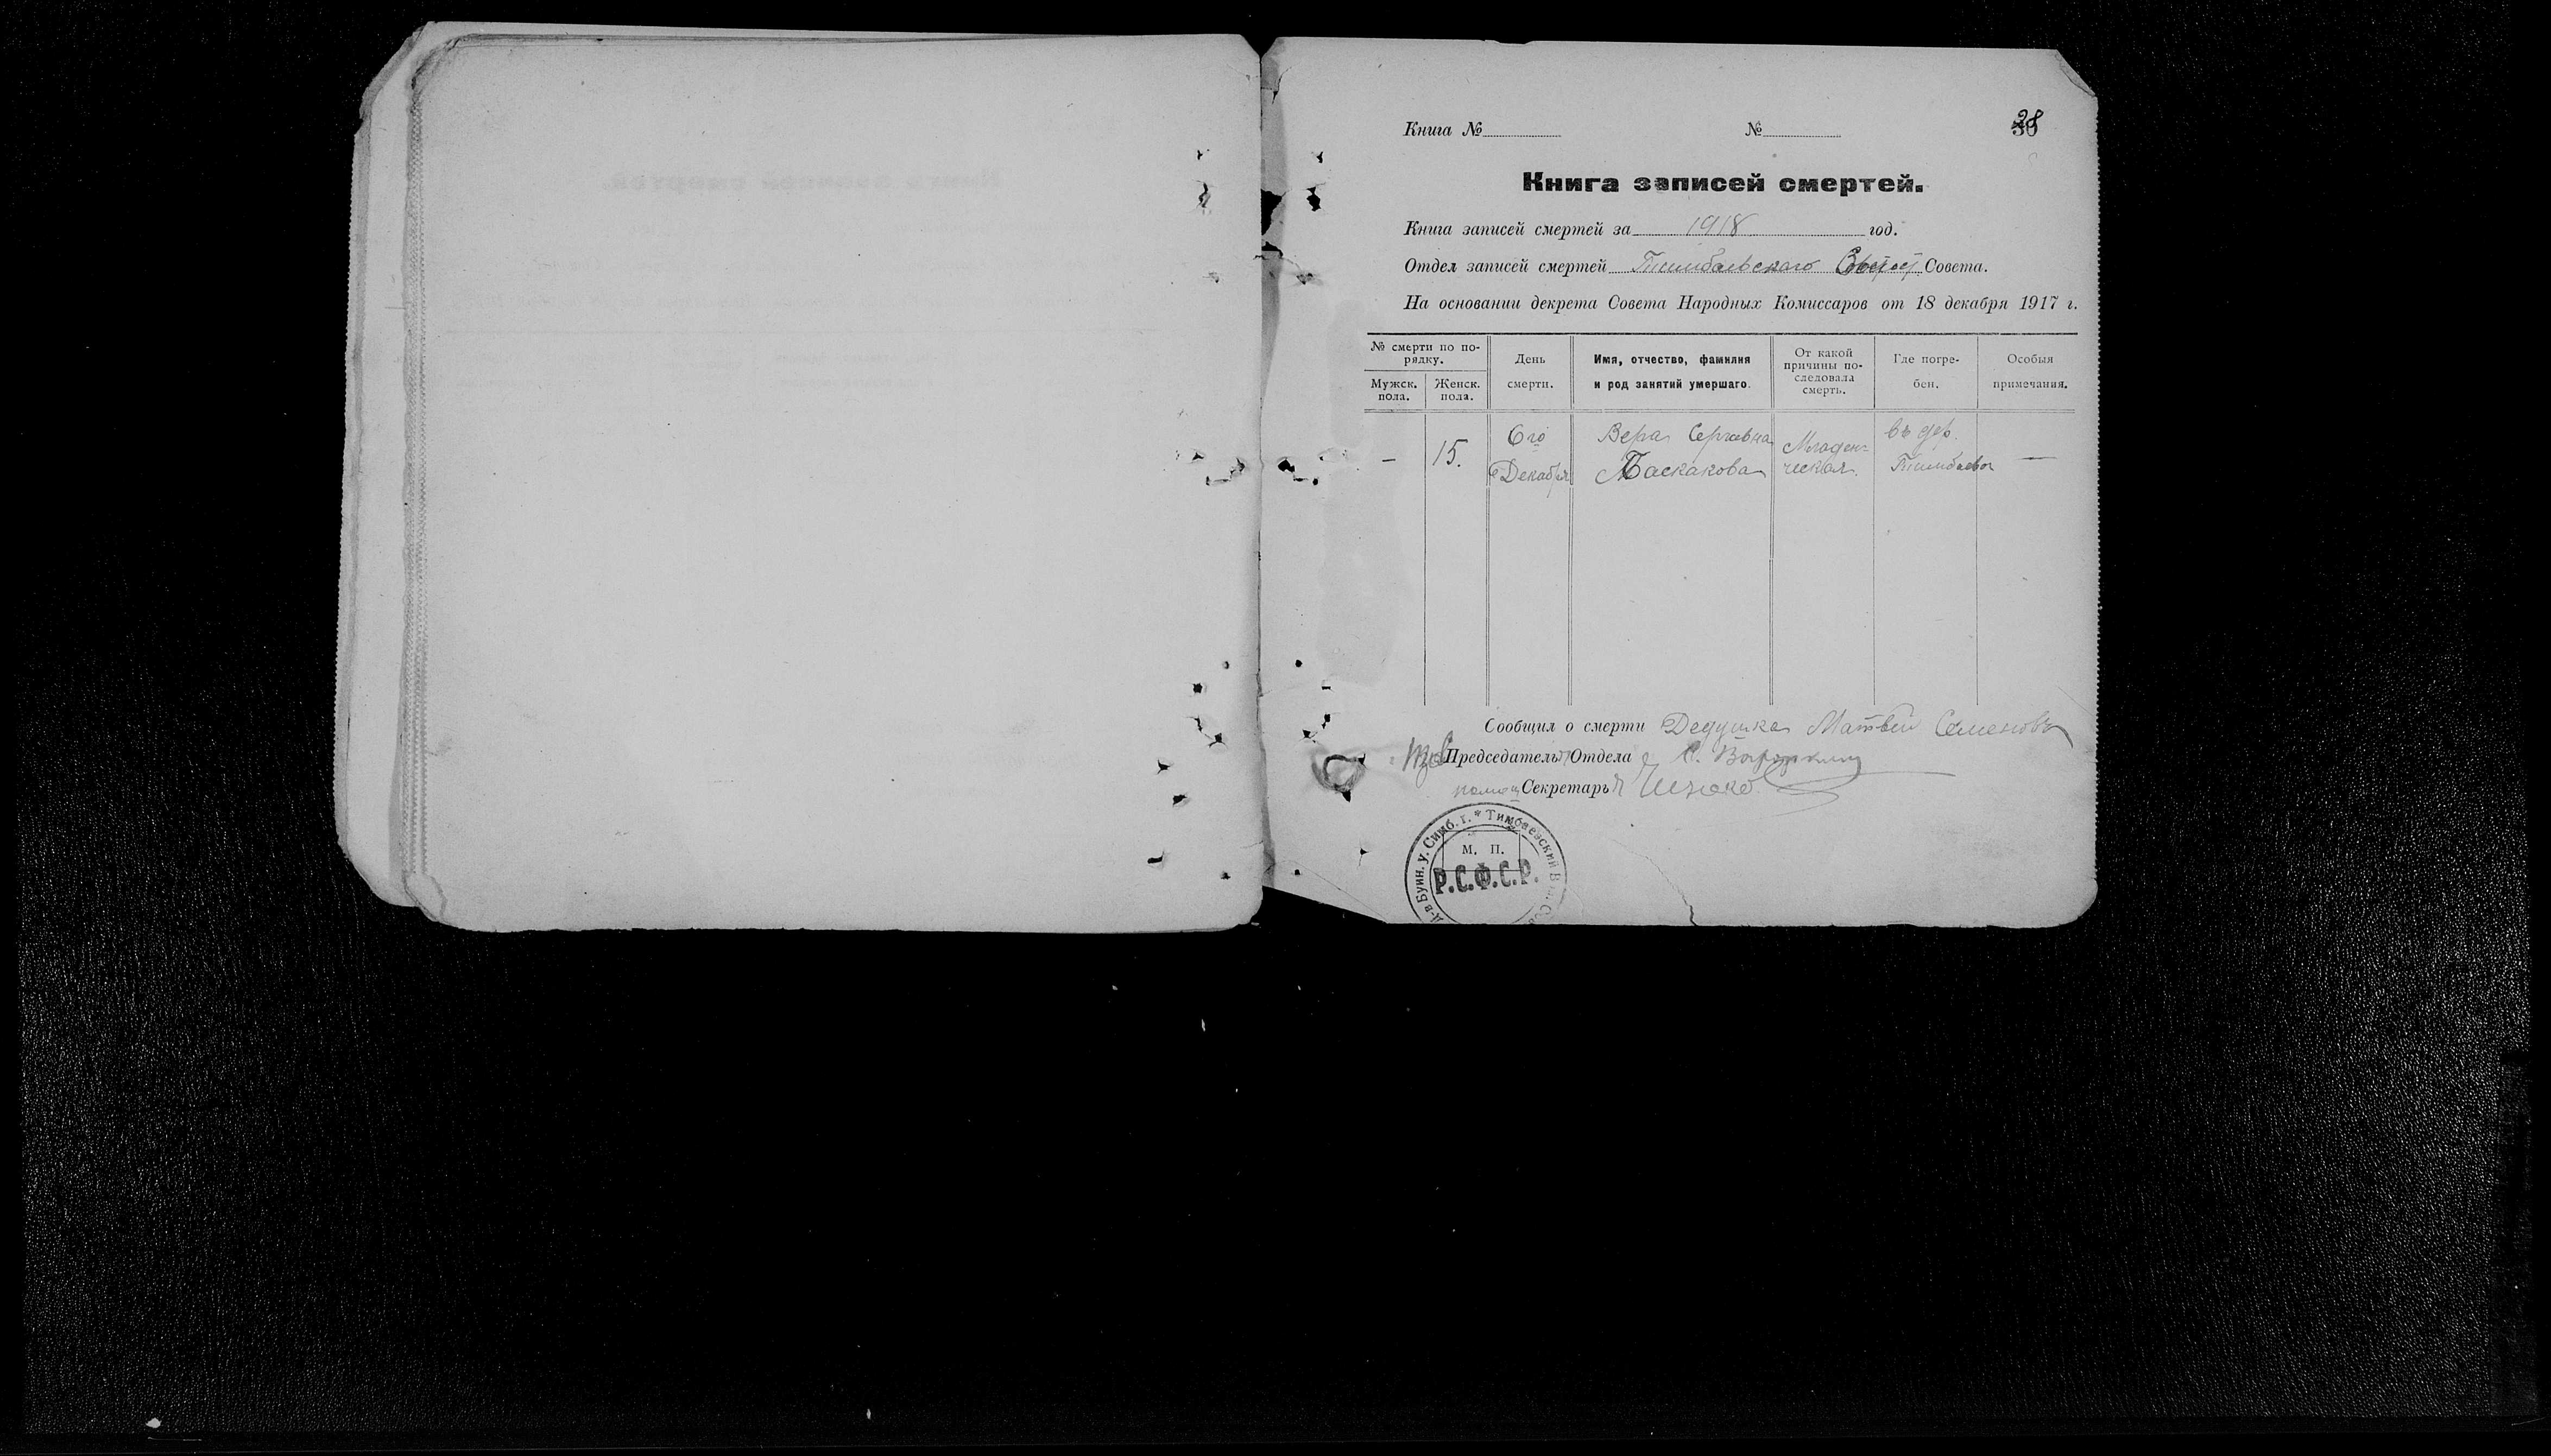 Книга № №
28
Книга записей смертей.
Книга записей смертей за 1918 год.
Отдел записей смертей Тимбаевскаго Совета.
На основании декрета Совета Народных Комиссаров от 18 декабря 1917 г.
№ смерти по порядку.
Мужск. пола.
Женск. пола.
День смерти.
Имя, отчество, фамилия и род занятий умершаго.
От какой причины последовала смерть.
Где погребен.
Особыя примечания.
—
15.
6го Декабря
Вера Сергѣевна
Баскакова
Младенческая.
въ дер. Тимбаево
—
Сообщил о смерти Дедушка Матвей Семеновъ
Председатель Отдела
Секретарь
М. П.
Р.С.Ф.С.Р.
Буин. у. Симб. г. * Тимбаевский